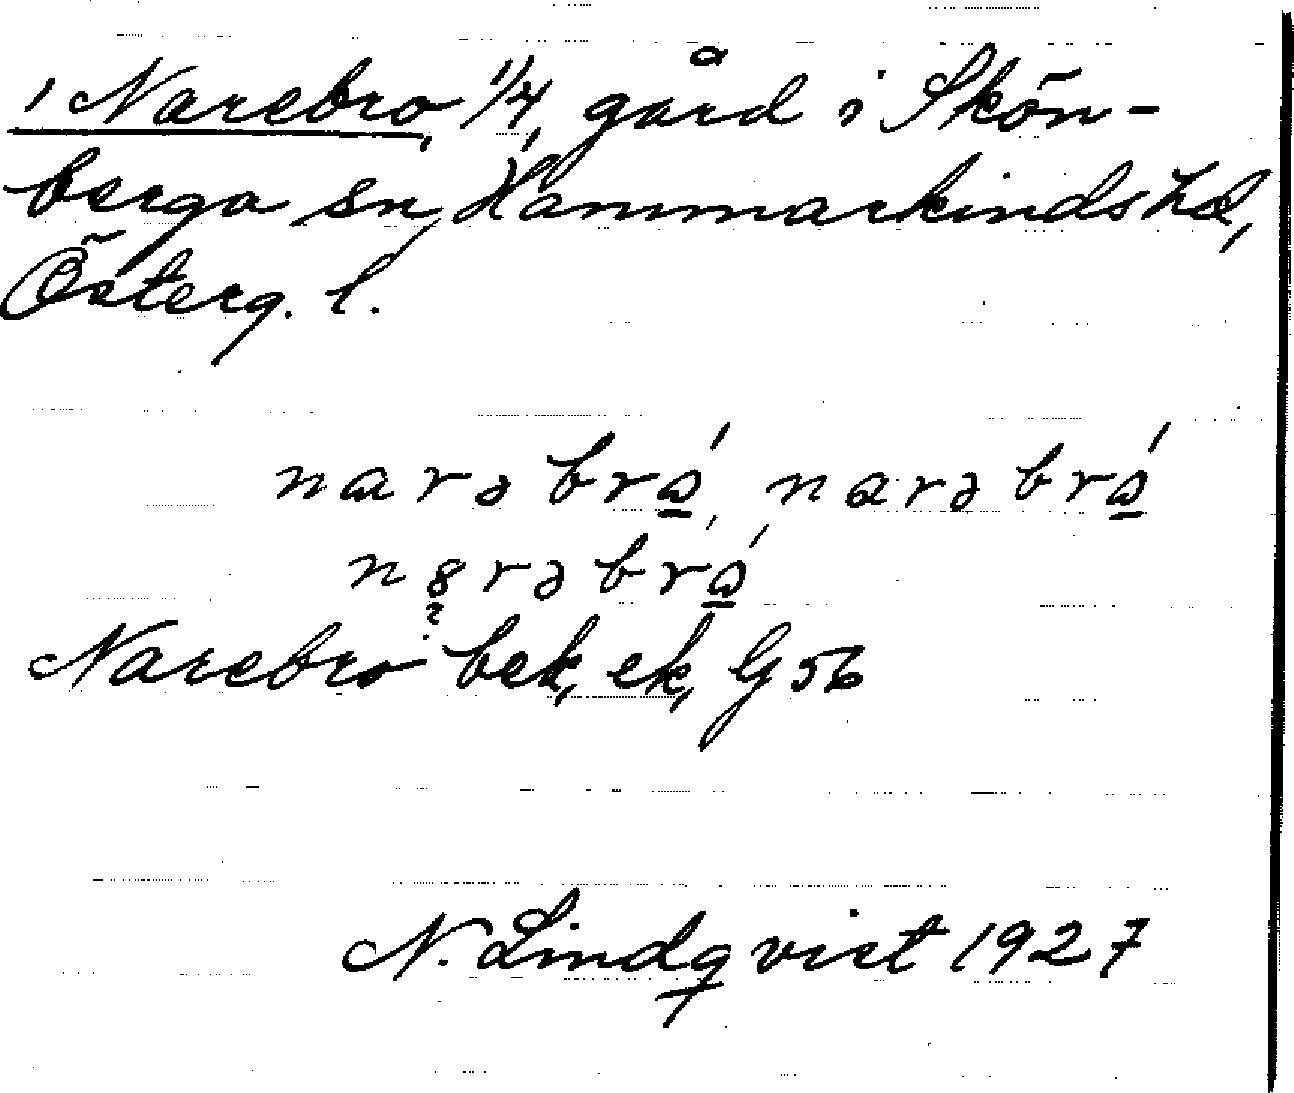 1 Narebro, 1/4, gård i Skön-
berga sn, Hammarkinds hd,
Österg. l.
narəbrώ̲, narəbrώ̲
n8rəbrώ̲
?
Narebro bek, ek, G 56
N. Lindqvist 1927